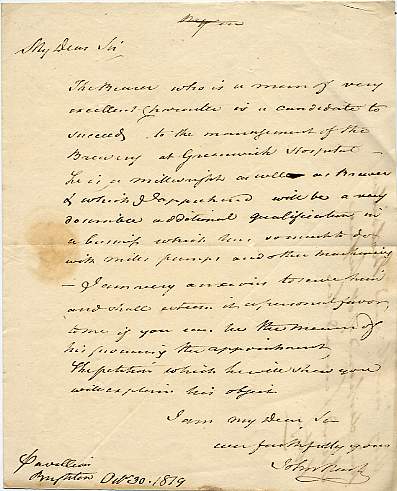 My Dear Sir,
The Bearer who is a man of very
excellent character is a candidate to
succeed to the management of the
Brewery at Greenwich Hospital —
he is a millwright as well as Brewer
& which I apprehend will be a very
desirable additional qualification in
a business which has so much to do
with mills pumps and other machinery
— I am very anxious to serve him
and shall esteem it a personal favor
to me if you can be the means of
his procuring the appointment,
The petition which he will shew you
will explain his object
I am my Dear Sir
ever faithfully yours
John
Pavillion
Brighton Octr 30. 1819